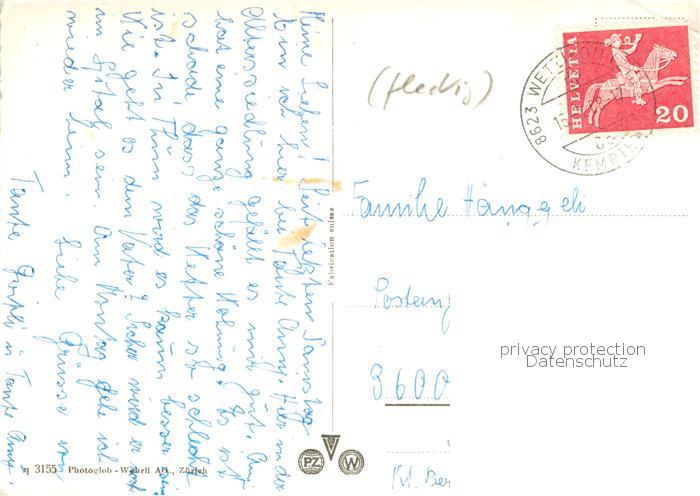 Meine Lieben! Seit letzten Samstag
bin ich hier bei Tante Anny. Hier in der
Alterssiedlung gefällt es mir gut. Anny
hat eine ganz schöne Wohnung. Es ist
schade dass das Wetter so schlecht
ist. In Thun wird es kaum besser sein.
Wie geht es dem Vater? Sicher wird er noch
im Spital sein. Am Montag gehe ich
wieder heim.
Liebe Grüsse von
Tante u. Tante Anny.
(fleckig)
HELVETIA
20
8623 WETZIKON
KEMPTEN
Familie Hänggeli
3600
Kt. Ber
Fabrication suisse
q 3155 Photoglob-Wehrli AG., Zürich
PZ
W
privacy protection
Datenschutz